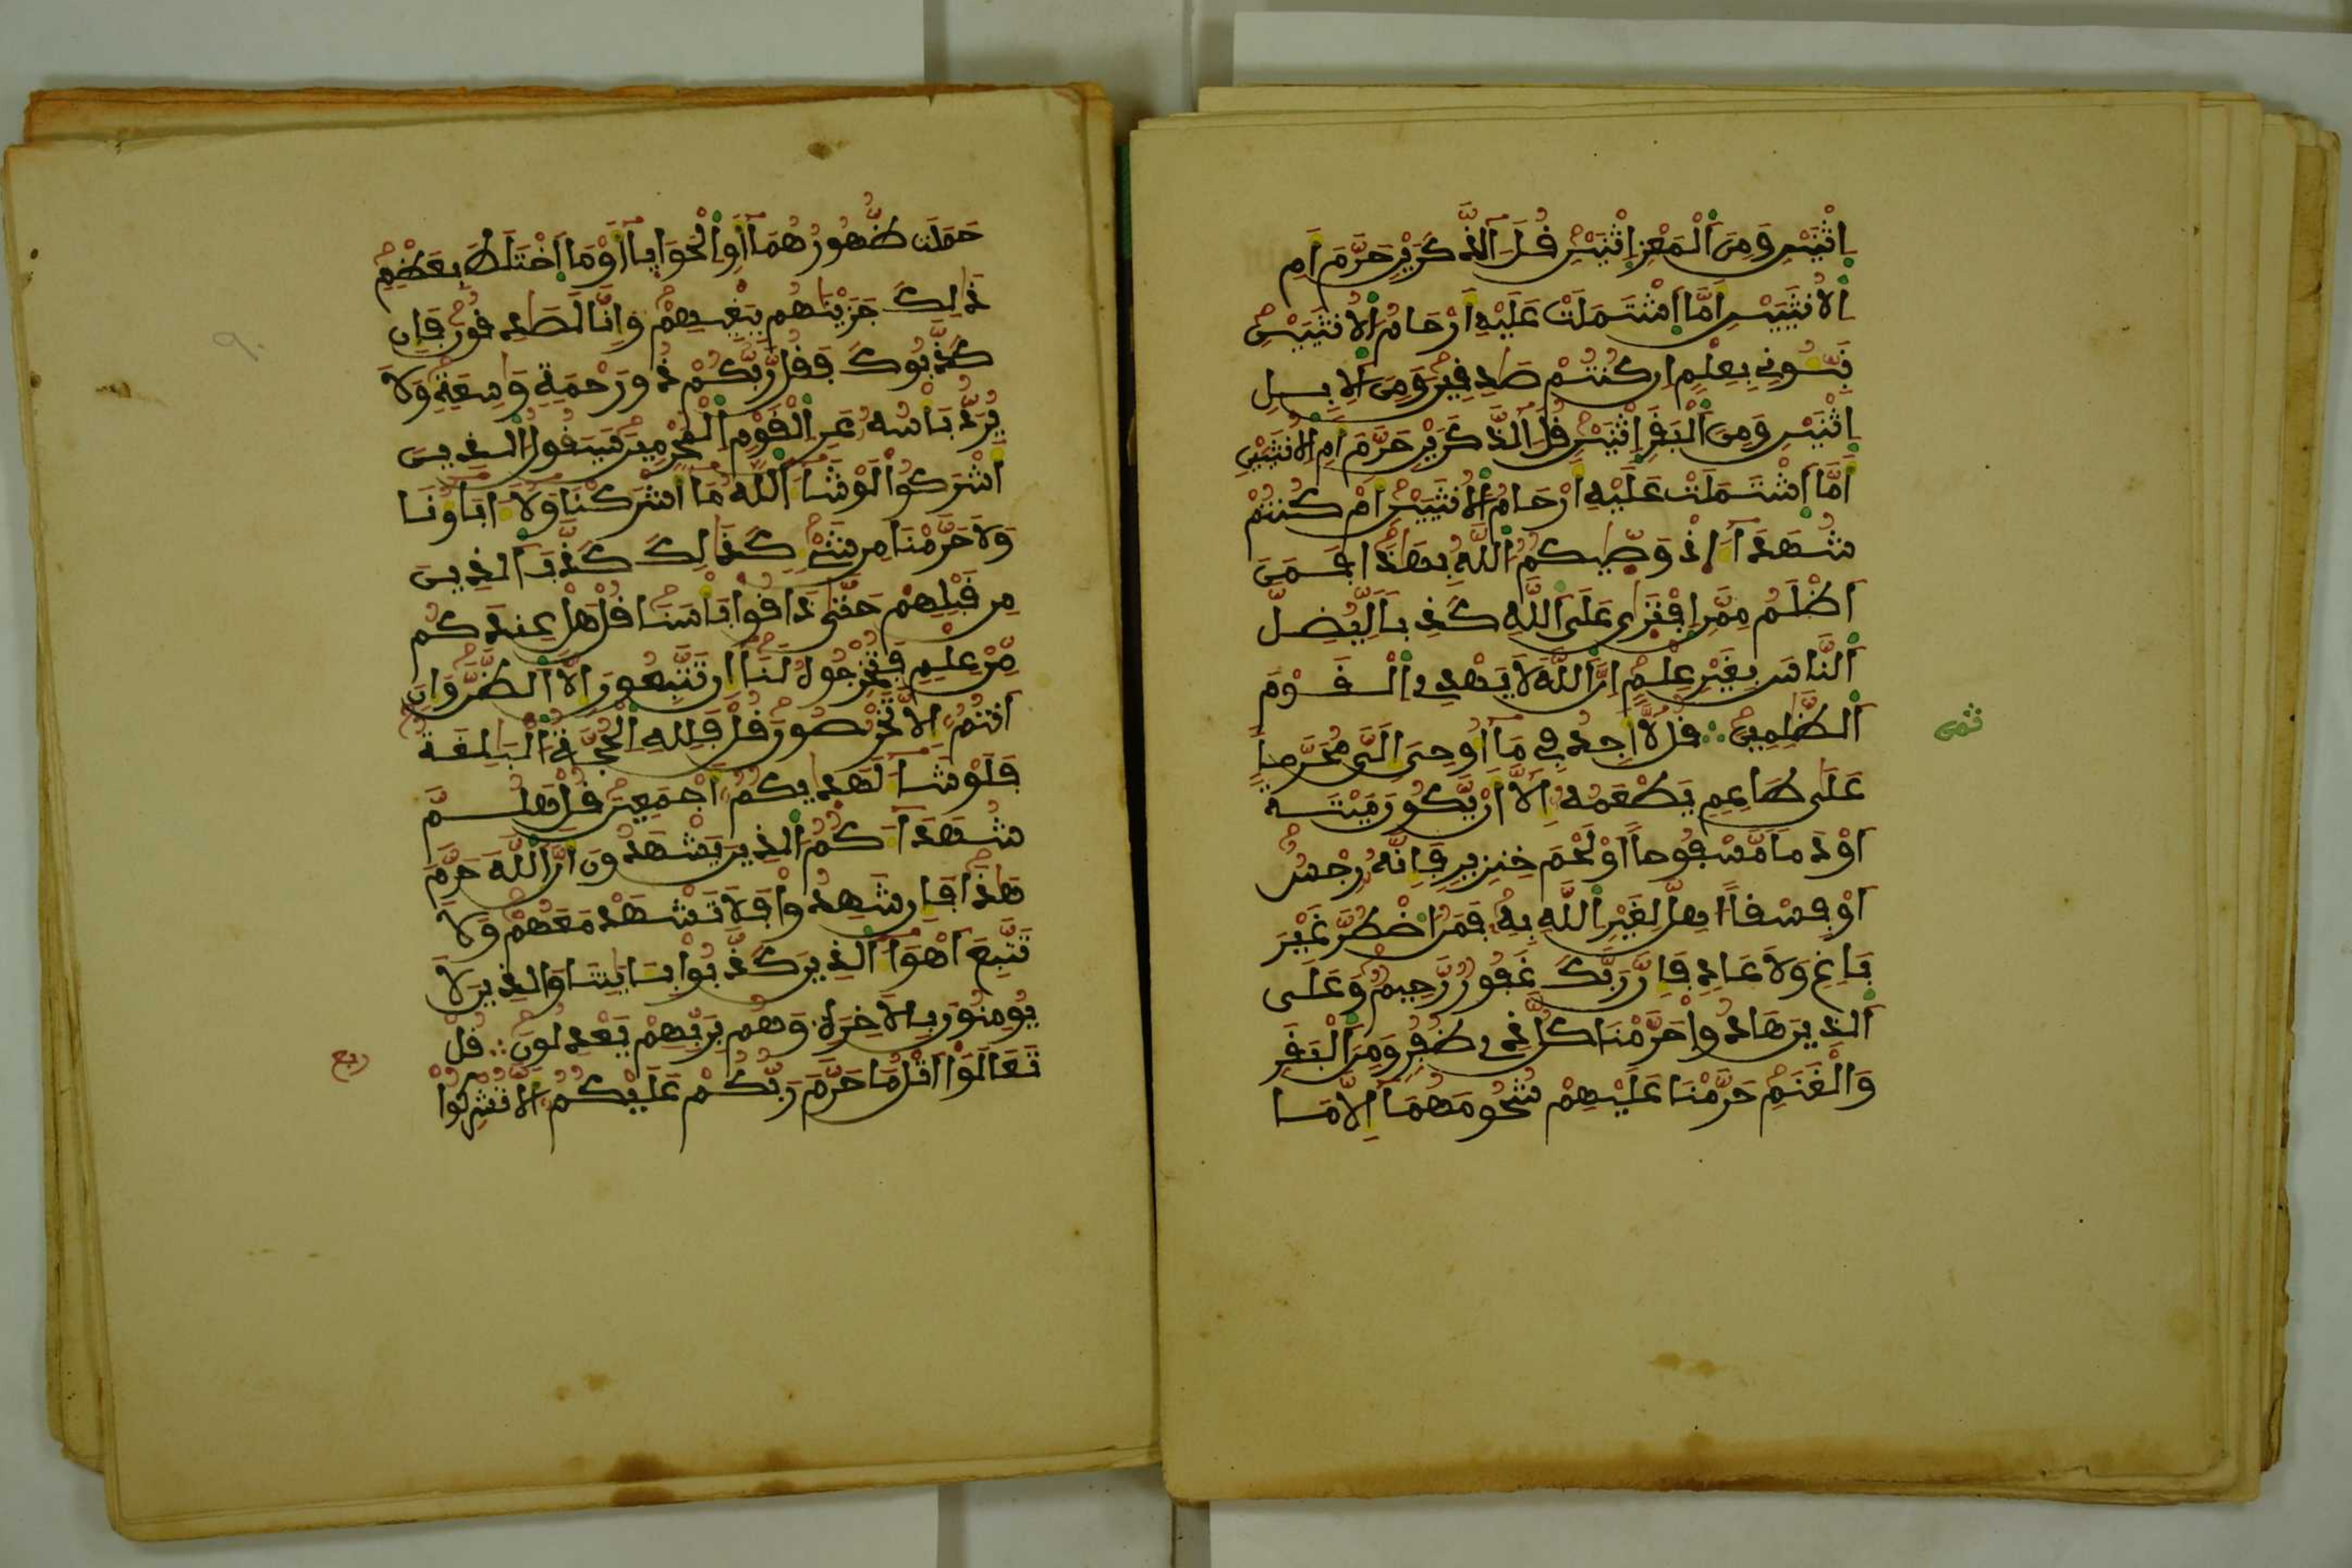 اِثْنَيْنِ وَمِنَ اَلْمَعْزِ اِثْنَيْنِ قُلَ آلذَّكَرَيْنِ حَرَّمَ أَمِ
اِلُانثَيَيْنِ أَمَّا اَشْتَمَلَتْ عَلَيْهِ أَرْحَامُ اُلُانثَيَيْنِ
نَبِّـُٔونِے بِعِلْمٍ اِن كُنتُمْ صَٰدِقِينَ وَمِنَ اَلِابِلِ
اِثْنَيْنِ وَمِنَ اَلْبَقَرِ اِثْنَيْنِ قُلَ آلذَّكَرَيْنِ حَرَّمَ أَمِ اِلُانثَيَيْنِ
أَمَّا اَشْتَمَلَتْ عَلَيْهِ أَرْحَامُ اُلُانثَيَيْنِ أَمْ كُنتُمْ
شُهَدَآءَ اِذْ وَصّٰيكُمُ اُللَّهُ بِهَٰذَا فَمَنَ
اَظْلَمُ مِمَّنِ اِفْتَر۪ىٰ عَلَى اَللَّهِ كَذِباً لِّيُضِلَّ
اَلنَّاسَ بِغَيْرِ عِلْمٍ اِنَّ اَللَّهَ لَا يَهْدِے اِلْقَوْمَ
اَلظَّٰلِمِينَ ۝ قُل لَّآ أَجِدُ فِے مَآ أُوحِىَ إِلَىَّ مُحَرَّماً
عَلَىٰ طَاعِمٍ يَطْعَمُهُۥٓ إِلَّآ أَنْ يَّكُونَ مَيْتَةً
أَوْ دَماً مَّسْفُوحاً أَوْ لَحْمَ خِنزِيرٍ فَإِنَّهُۥ رِجْسٌ
أَوْ فِسْقاً أُهِلَّ لِغَيْرِ اِللَّهِ بِهِۦ فَمَنُ اُضْطُرَّ غَيْرَ
بَاغٍ وَلَا عَادٍ فَإِنَّ رَبَّكَ غَفُورٌ رَّحِيمٌ وَعَلَى
اَلذِينَ هَادُواْ حَرَّمْنَا كُلَّ ذِے ظُفُرٍ وَمِنَ اَلْبَقَرِ
وَالْغَنَمِ حَرَّمْنَا عَلَيْهِمْ شُحُومَهُمَآ إِلَّا مَا
ثمن
حَمَلَت ظُّهُورُهُمَآ أَوِ اِلْحَوَايَآ أَوْ مَا اَخْتَلَطَ بِعَظْمٍ
ذَٰلِكَ جَزَيْنَٰهُم بِبَغْيِهِمْ وَإِنَّا لَصَٰدِقُونَ فَإِن
كَذَّبُوكَ فَقُل رَّبُّكُمْ ذُو رَحْمَةٍ وَٰسِعَةٍ وَلَا
يُرَدُّ بَأْسُهُۥ عَنِ اِلْقَوْمِ اِلْمُجْرِمِينَ سَيَقُولُ اُلذِينَ
أَشْرَكُواْ لَوْ شَآءَ اَللَّهُ مَآ أَشْرَكْنَا وَلَآ ءَابَآؤُنَا
وَلَا حَرَّمْنَا مِن شَےْءٍ كَذَٰلِكَ كَذَّبَ اَلذِينَ
مِن قَبْلِهِمْ حَتَّىٰ ذَاقُواْ بَأْسَنَا قُلْ هَلْ عِندَكُم
مِّنْ عِلْمٍ فَتُخْرِجُوهُ لَنَآ إِن تَتَّبِعُونَ إِلَّا اَلظَّنَّ وَإِنَ
اَنتُمُۥٓ إِلَّا تَخْرُصُونَ قُلْ فَلِلهِ اِلْحُجَّةُ اُلْبَٰلِغَةُ
فَلَوْ شَآءَ لَهَدٰيكُمُۥٓ أَجْمَعِينَ قُلْ هَلُمَّ
شُهَدَآءَكُمُ اُلذِينَ يَشْهَدُونَ أَنَّ اَللَّهَ حَرَّمَ
هَٰذَا فَإِن شَهِدُواْ فَلَا تَشْهَدْ مَعَهُمْ وَلَا
تَتَّبِعَ اَهْوَآءَ اَلذِينَ كَذَّبُواْ بِـَٔايَٰتِنَا وَالذِينَ لَا
يُومِنُونَ بِالَاخِرَةِ وَهُم بِرَبِّهِمْ يَعْدِلُونَ ۝ قُلْ
تَعَالَوَاْ اَتْلُ مَا حَرَّمَ رَبُّكُمْ عَلَيْكُمُۥٓ أَلَّا تُشْرِكُواْ
ربع